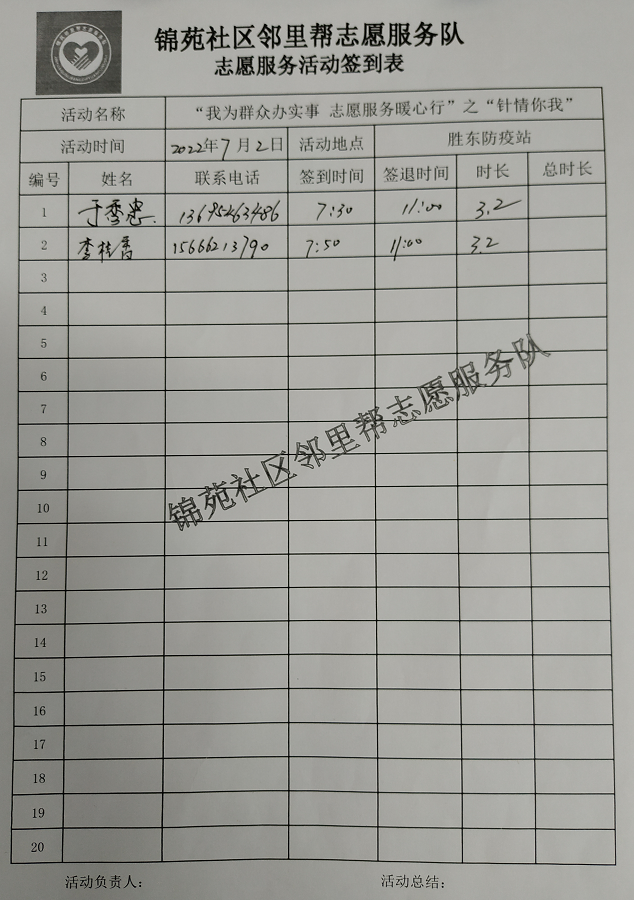 锦苑社区邻里帮志愿服务队
志愿服务活动签到表
活动名称 “我为群众办实事 志愿服务暖心行”之“针情你我”
活动时间 2022年7月2日 活动地点 胜东防疫站
编号 姓名 联系电话 签到时间 签退时间 时长 总时长
1 于秀忠 13695463486 7:30 11:00 3.2
2 李桂香 15666213790 7:50 11:00 3.2
3
4
5
6
7
8
9
10
11
12
13
14
15
16
17
18
19
20
锦苑社区邻里帮志愿服务队
活动负责人： 活动总结：